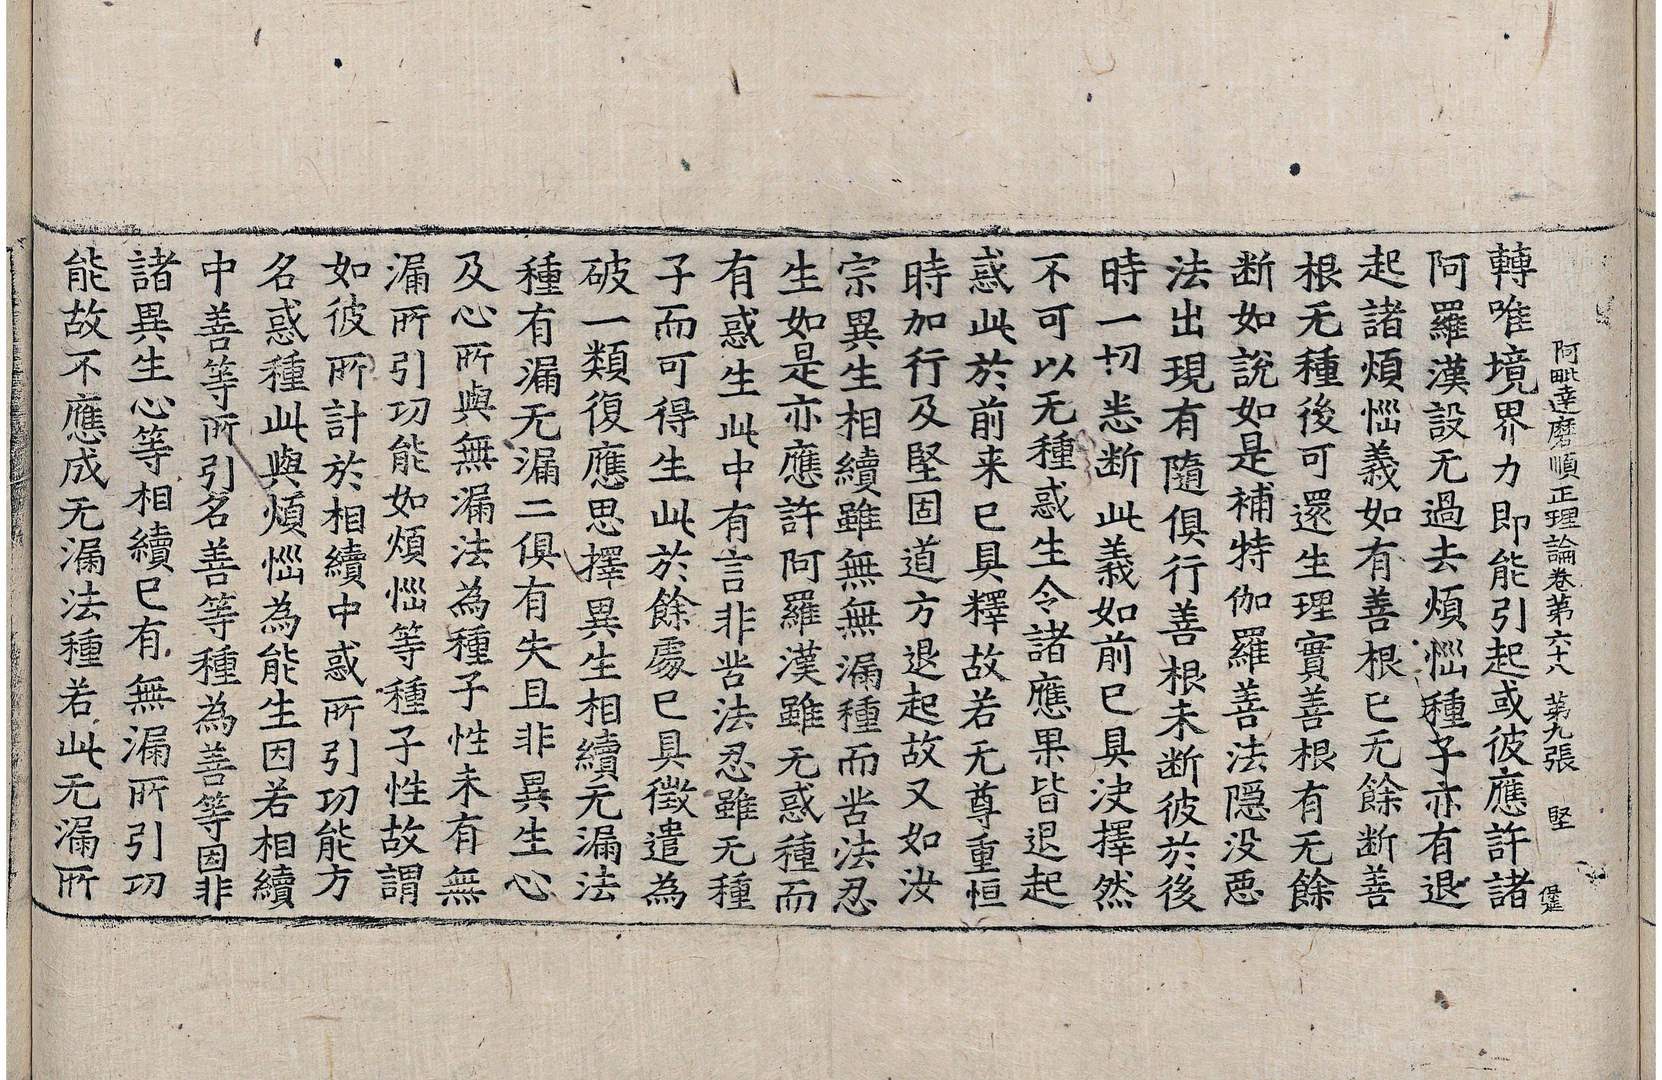 阿毗達磨順正理論卷第六十八 第九張 堅
轉唯境界力即能引起或彼應許諸
阿羅漢設无過去煩惱種子亦有退
起諸煩惱義如有善根已无餘断善
根无種後可還生理實善根有无餘
断如說如是補特伽羅善法隱没惡
法出現有隨俱行善根未断彼於後
時一切悉断此義如前已具決擇然
不可以无種惑生令諸應果皆退起
惑此於前来已具釋故若无尊重恒
時加行及堅固道方退起故又如汝
宗異生相續雖無無漏種而苦法忍
生如是亦應許阿羅漢雖无惑種而
有惑生此中有言非苦法忍雖无種
子而可得生此於餘處已具徵遣為
破一類復應思擇異生相續无漏法
種有漏无漏二俱有失且非異生心
及心所與無漏法為種子性未有無
漏所引功能如煩惱等種子性故謂
如彼所計於相續中惑所引功能方
名惑種此與煩惱為能生因若相續
中善等所引名善等種為善等因非
諸異生心等相續已有無漏所引功
能故不應成无漏法種若此无漏所